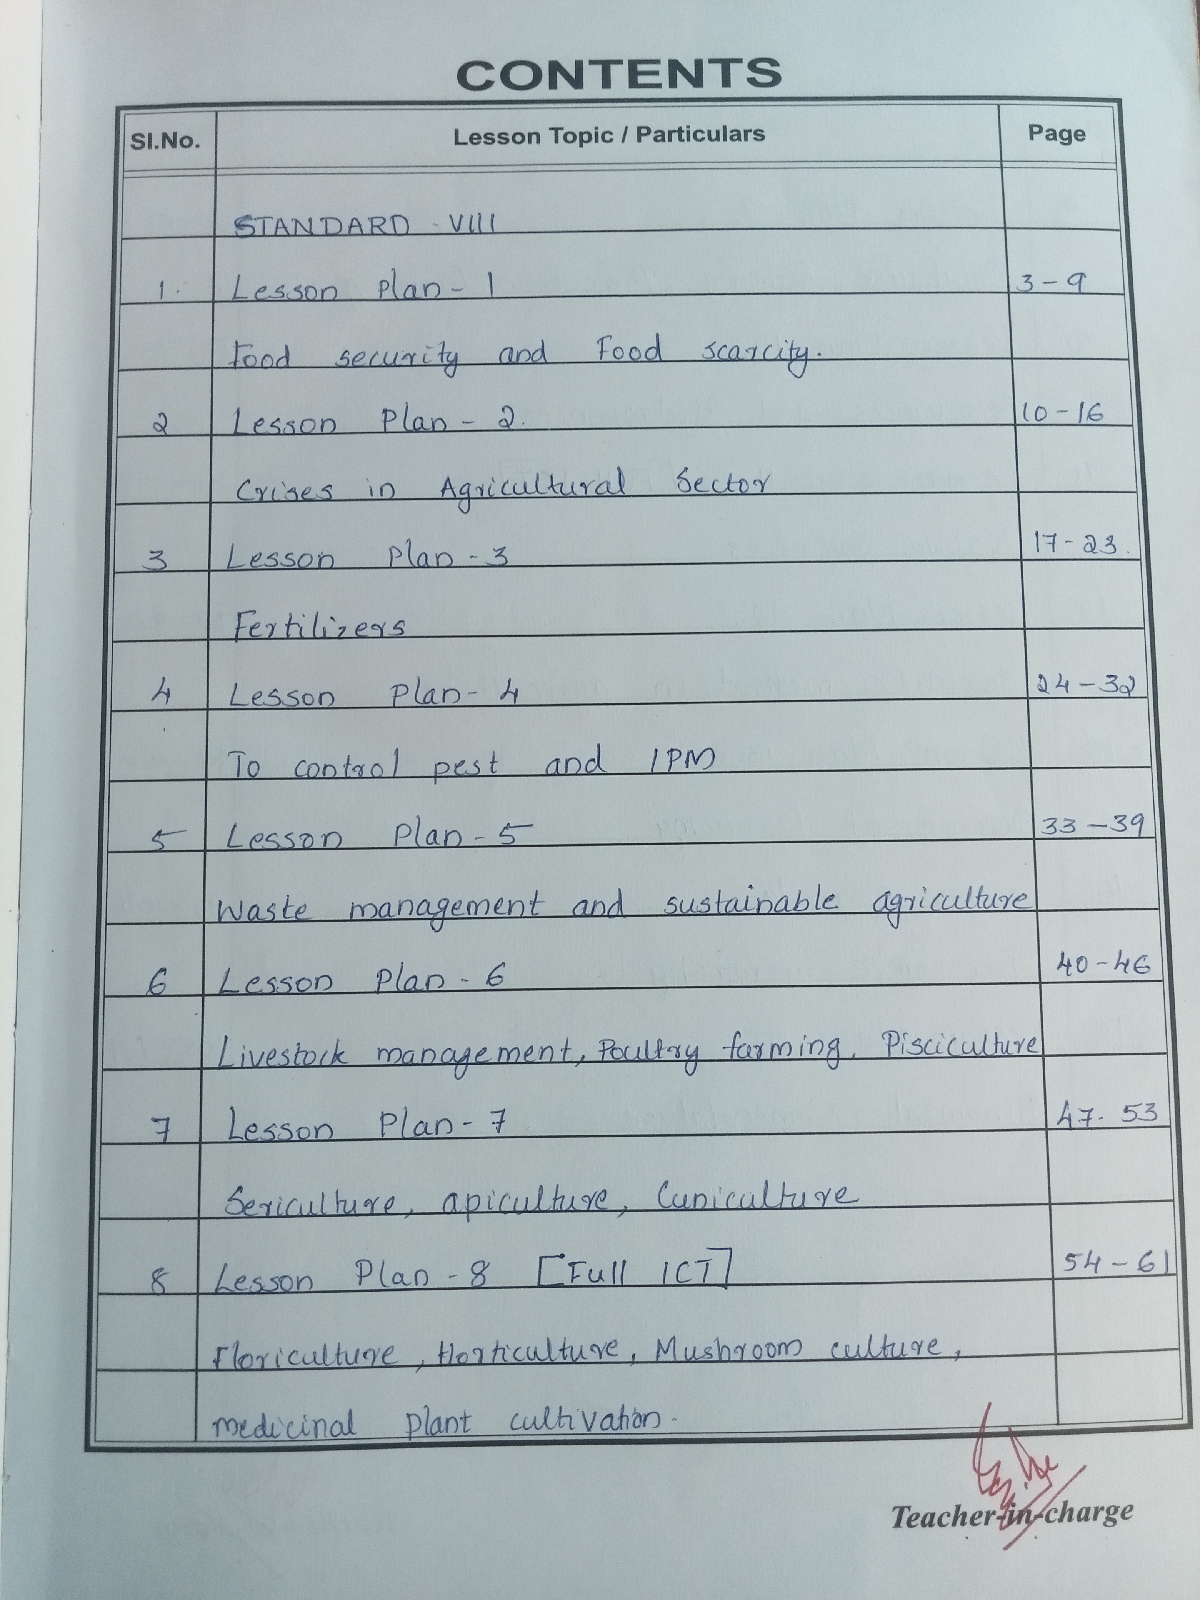 CONTENTS
Sl.No. Lesson Topic / Particulars Page
STANDARD - VIII
1. Lesson Plan - 1 3 - 9
Food security and Food scarcity.
2 Lesson Plan - 2. 10 - 16
Crises in Agricultural Sector
3 Lesson Plan - 3 17 - 23.
Fertilizers
4 Lesson Plan - 4 24 - 32
To control pest and IPM
5 Lesson Plan - 5 33 - 39
Waste management and sustainable agriculture
6 Lesson Plan - 6 40 - 46
Livestock management, Poultry farming, Pisciculture
7 Lesson Plan - 7 47 - 53
Sericulture, apiculture, Cuniculture
8 Lesson Plan - 8 [Full ICT] 54 - 61
Floriculture, Horticulture, Mushroom culture,
medicinal plant cultivation.
Teacher-in-charge